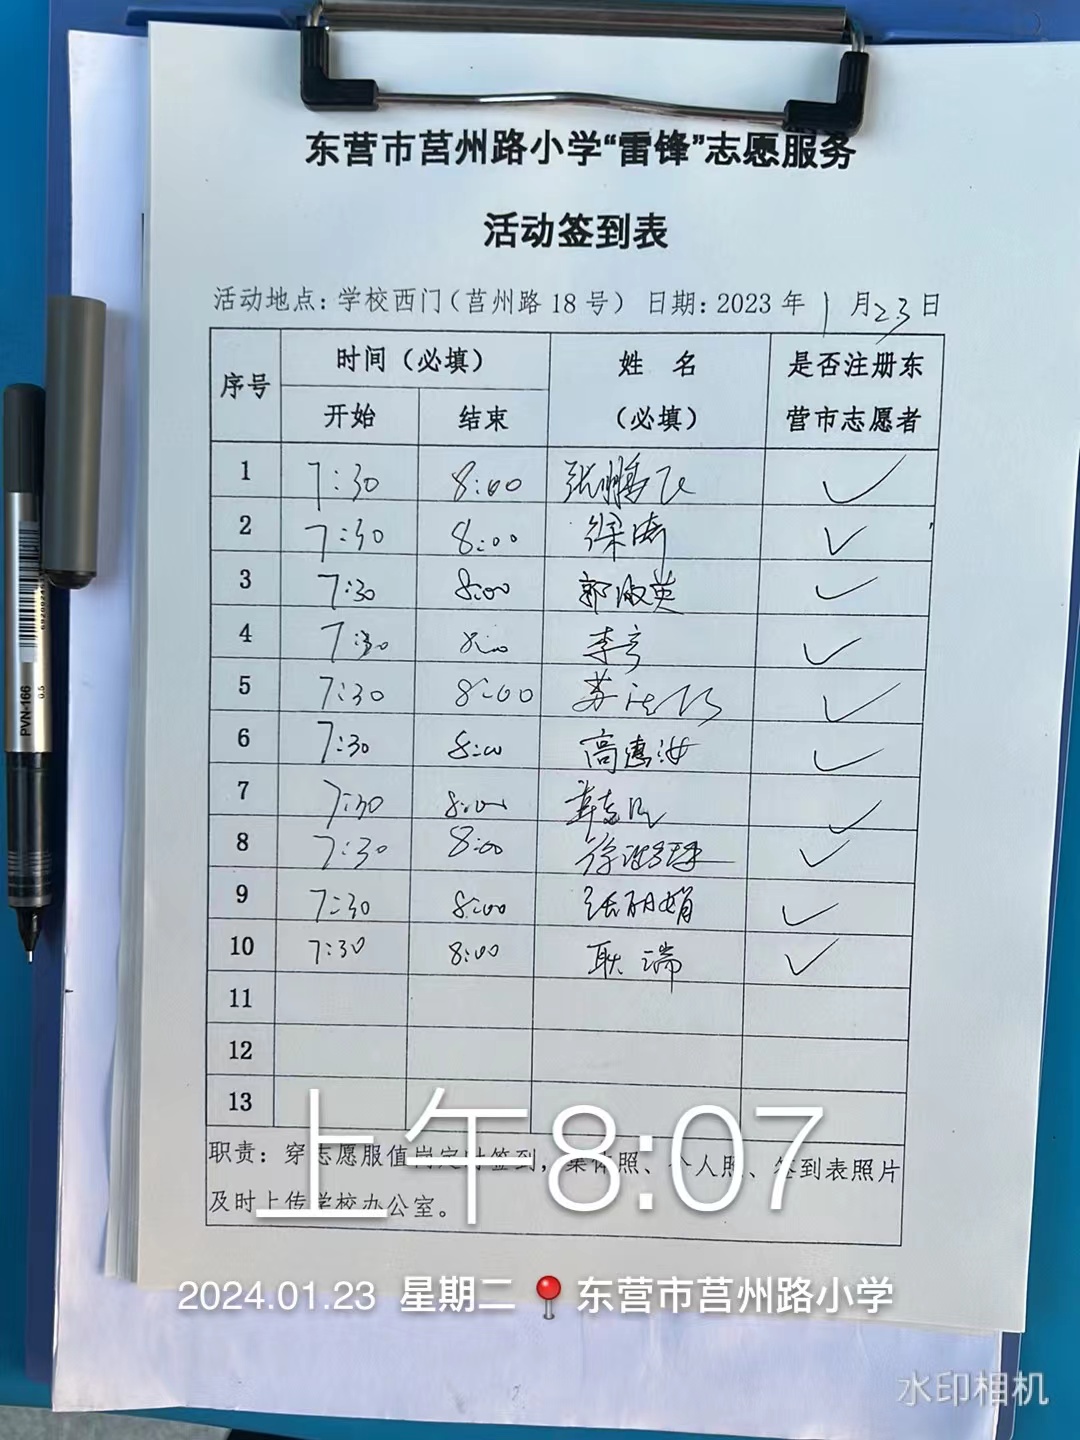 东营市莒州路小学“雷锋”志愿服务
活动签到表
活动地点：学校西门（莒州路 18 号） 日期：2023 年 1 月 23 日
序号 时间（必填） 姓 名（必填） 是否注册东营市志愿者
开始 结束
1 7:30 8:00 张鹏飞 ✓
2 7:30 8:00 徐 ✓
3 7:30 8:00 郭淑英 ✓
4 7:30 8:00 李 ✓
5 7:30 8:00 苏 ✓
6 7:30 8:00 高惠汝 ✓
7 7:30 8:00 ✓
8 7:30 8:00 徐 ✓
9 7:30 8:00 张丽娟 ✓
10 7:30 8:00 耿瑞 ✓
11
12
13
职责：穿志愿服值岗定时签到，集体照、个人照、签到表照片
及时上传学校办公室。
上午8:07
2024.01.23 星期二 东营市莒州路小学
水印相机
PVN-166
0.5